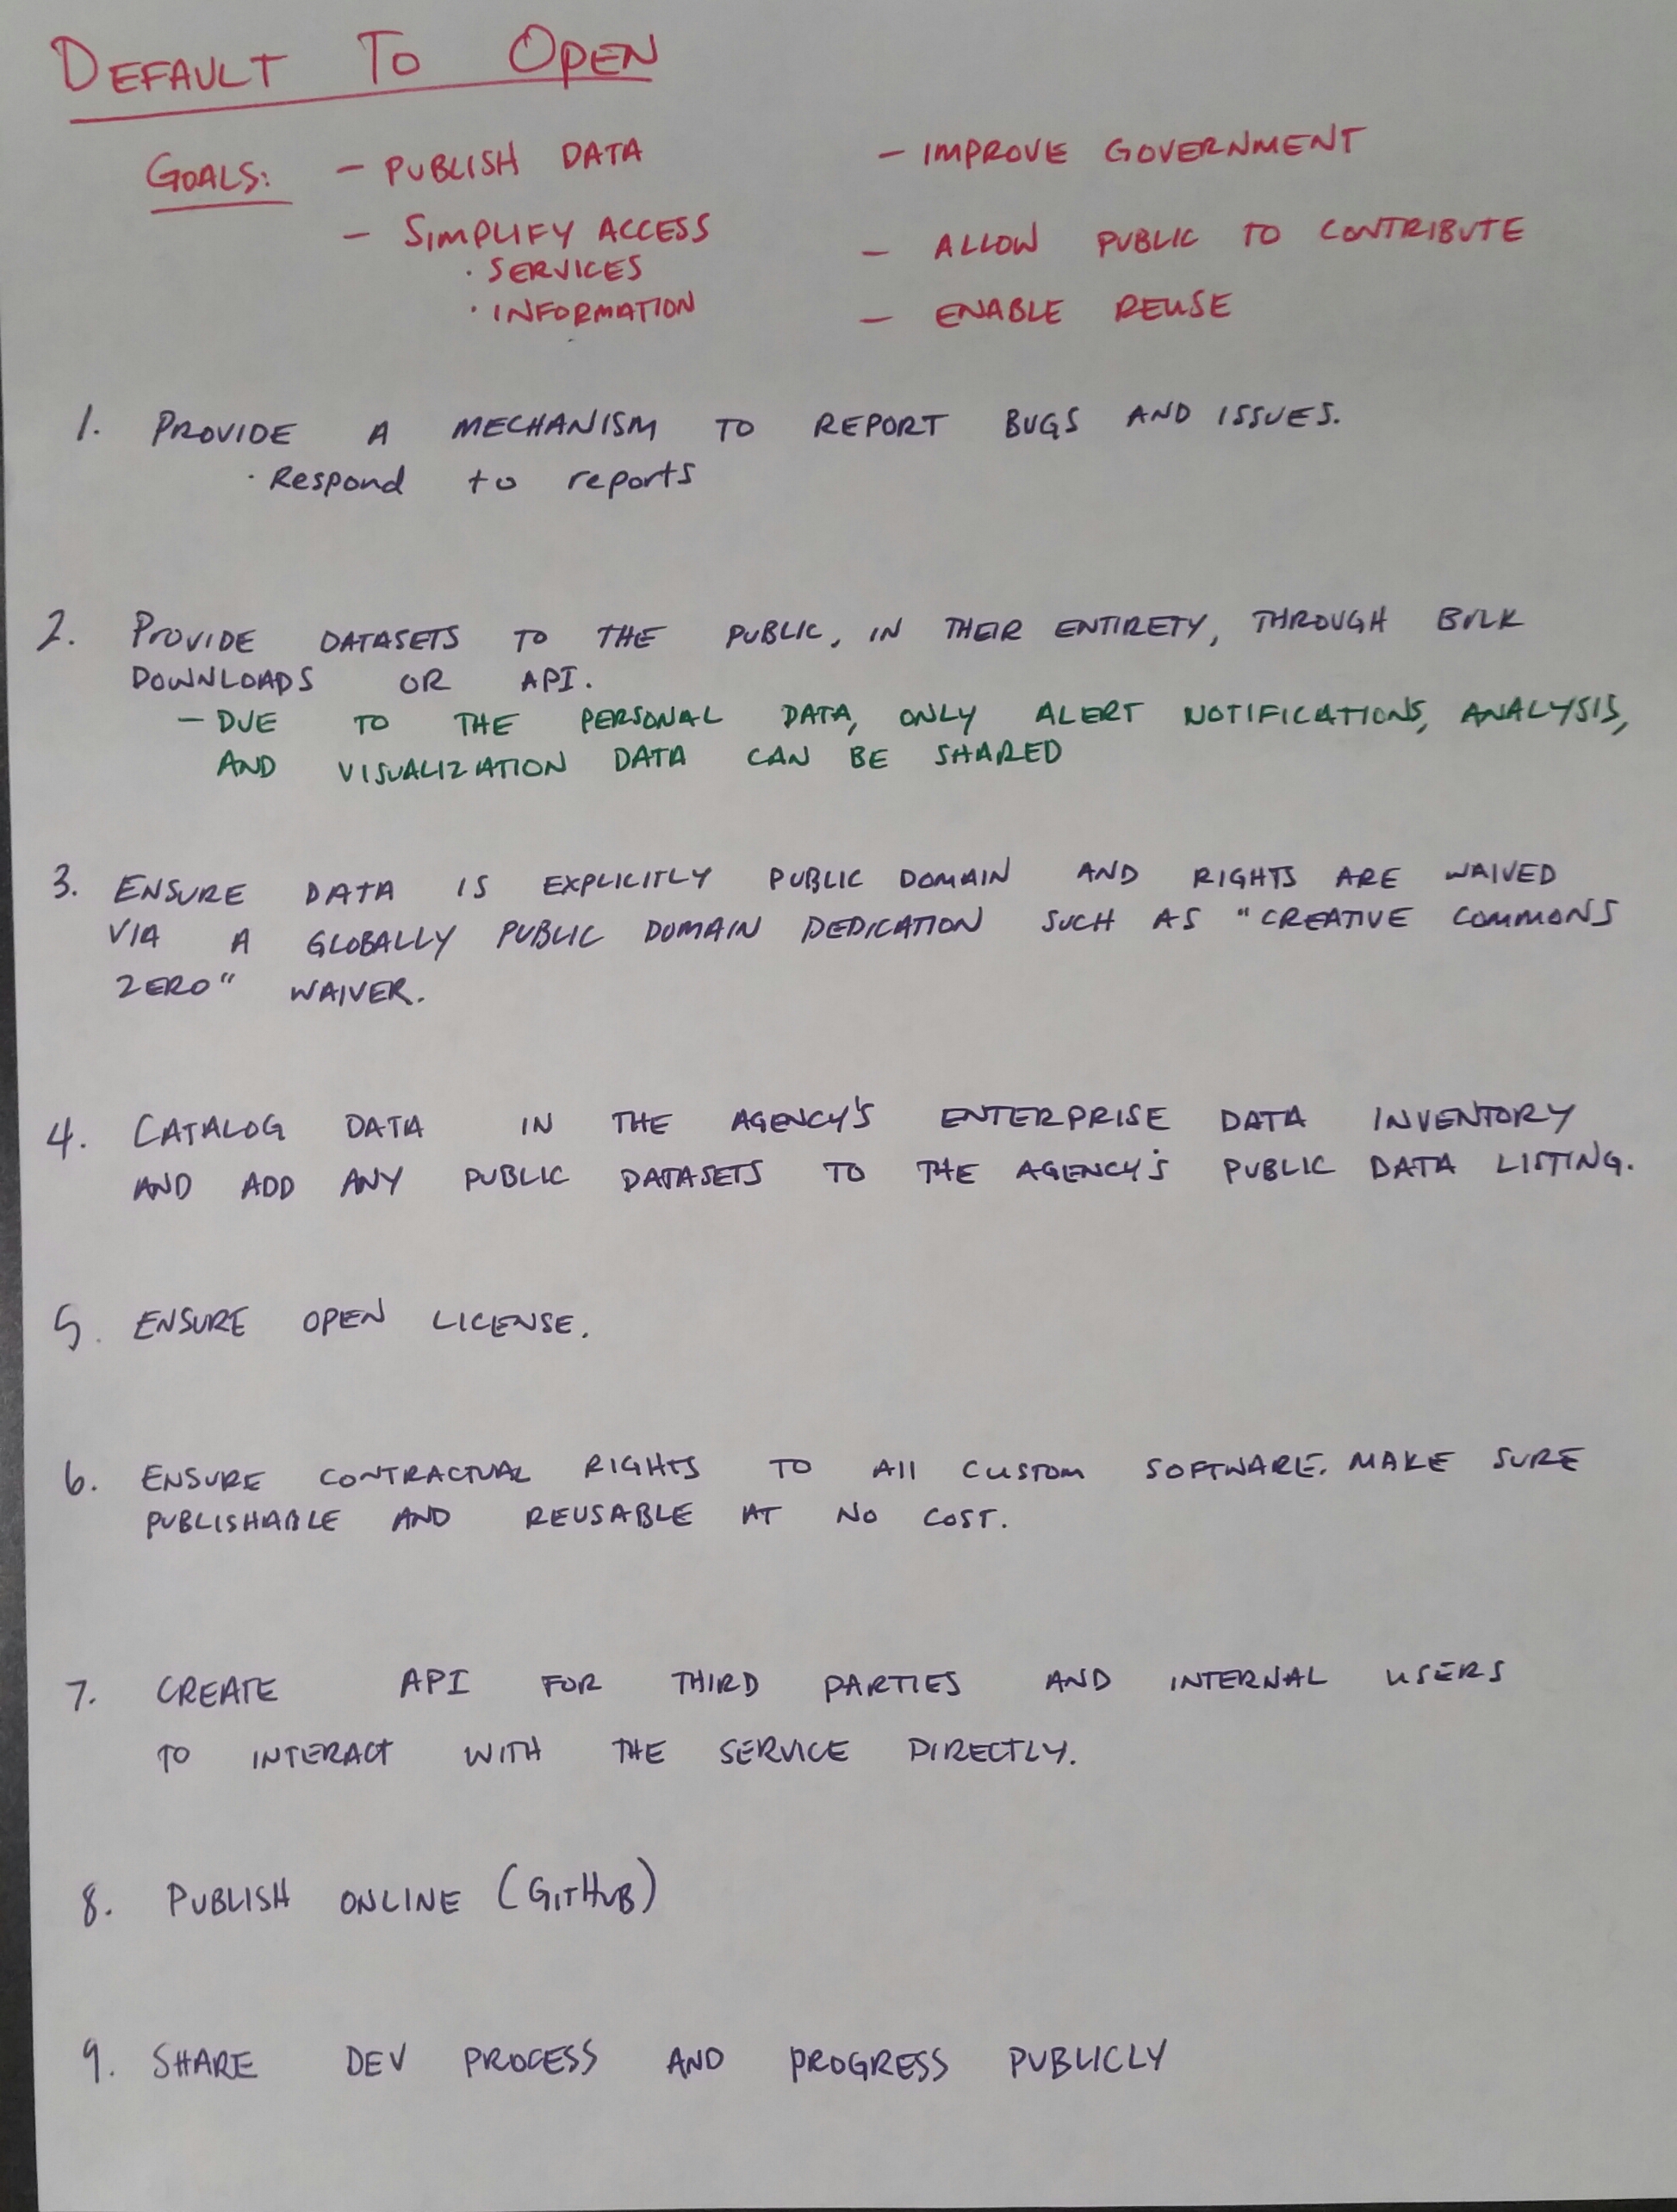 DEFAULT TO OPEN
GOALS: - PUBLISH DATA
- SIMPLIFY ACCESS
· SERVICES
· INFORMATION
- IMPROVE GOVERNMENT
- ALLOW PUBLIC TO CONTRIBUTE
- ENABLE REUSE
1. PROVIDE A MECHANISM TO REPORT BUGS AND ISSUES.
· Respond to reports
2. PROVIDE DATASETS TO THE PUBLIC, IN THEIR ENTIRETY, THROUGH BULK
DOWNLOADS OR API.
- DUE TO THE PERSONAL DATA, ONLY ALERT NOTIFICATIONS, ANALYSIS,
AND VISUALIZATION DATA CAN BE SHARED
3. ENSURE DATA IS EXPLICITLY PUBLIC DOMAIN AND RIGHTS ARE WAIVED
VIA A GLOBALLY PUBLIC DOMAIN DEDICATION SUCH AS "CREATIVE COMMONS
ZERO" WAIVER.
4. CATALOG DATA IN THE AGENCY'S ENTERPRISE DATA INVENTORY
AND ADD ANY PUBLIC DATASETS TO THE AGENCY'S PUBLIC DATA LISTING.
5. ENSURE OPEN LICENSE.
6. ENSURE CONTRACTUAL RIGHTS TO All CUSTOM SOFTWARE. MAKE SURE
PUBLISHABLE AND REUSABLE AT NO COST.
7. CREATE API FOR THIRD PARTIES AND INTERNAL USERS
TO INTERACT WITH THE SERVICE DIRECTLY.
8. PUBLISH ONLINE (GITHUB)
9. SHARE DEV PROCESS AND PROGRESS PUBLICLY